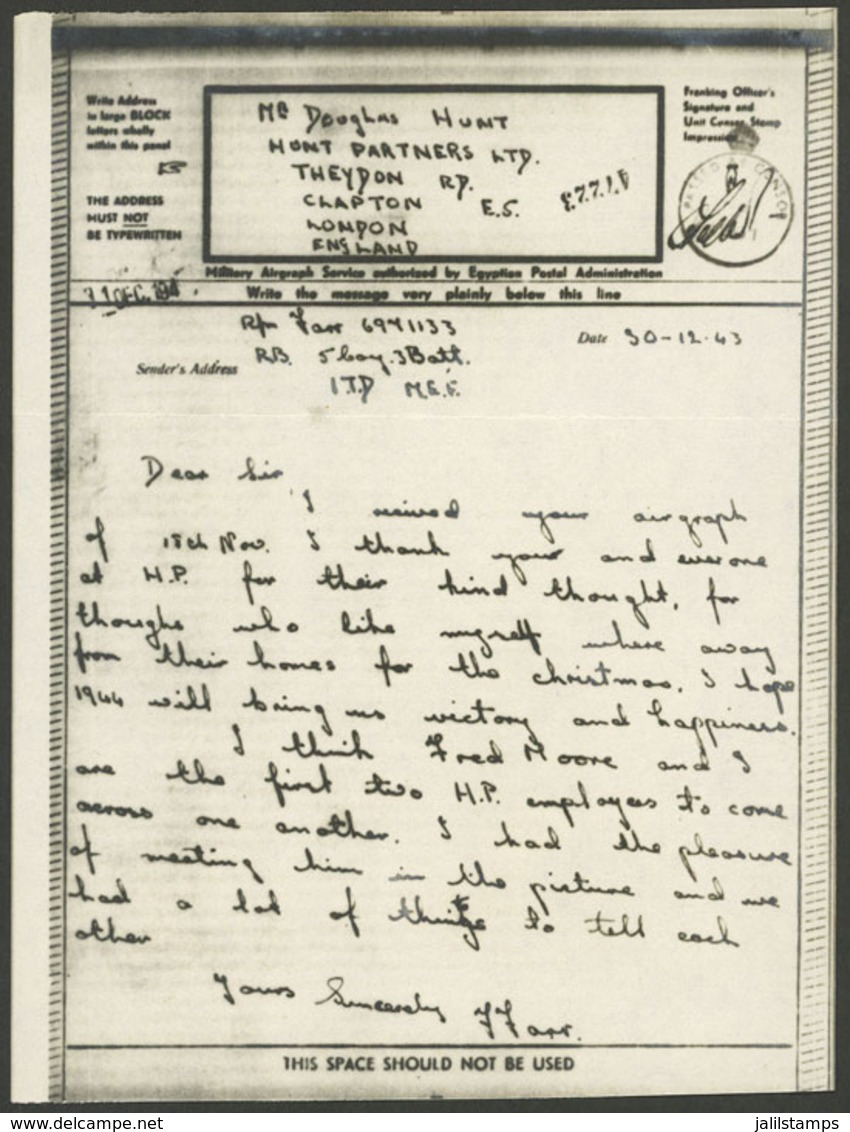 Write Address
in large BLOCK
letters wholly
within this panel
THE ADDRESS
MUST NOT
BE TYPEWRITTEN
MR Douglas HUNT
HUNT PARTNERS LTD.
THEYDON RD.
CLAPTON E.5.
LONDON
ENGLAND
Franking Officer's
Signature and
Unit Censor Stamp
Impression
PASSED BY CENSOR
Military Airgraph Service authorized by Egyptian Postal Administration
Write the message very plainly below this line
31 DEC. 194
Rfn Farr 6971133
Date 30-12-43
Sender's Address RB. 5 Coy. 3 Batt.
ITD M.E.F.
Dear Sir
I reived your airgraph
of 18th Nov. I thank your and everone
at H.P. for their kind thought, for
thoughs who like myself where away
from their homes for the christmas. I hope
1944 will bring us victory and happiness.
I think Fred Moore and I
are the first two H.P. employees to come
across one another. I had the pleasure
of meeting him in the picture and we
had a lot of things to tell each
other
Yours Sincerely F Farr.
THIS SPACE SHOULD NOT BE USED
delcampe.net
jalilstamps